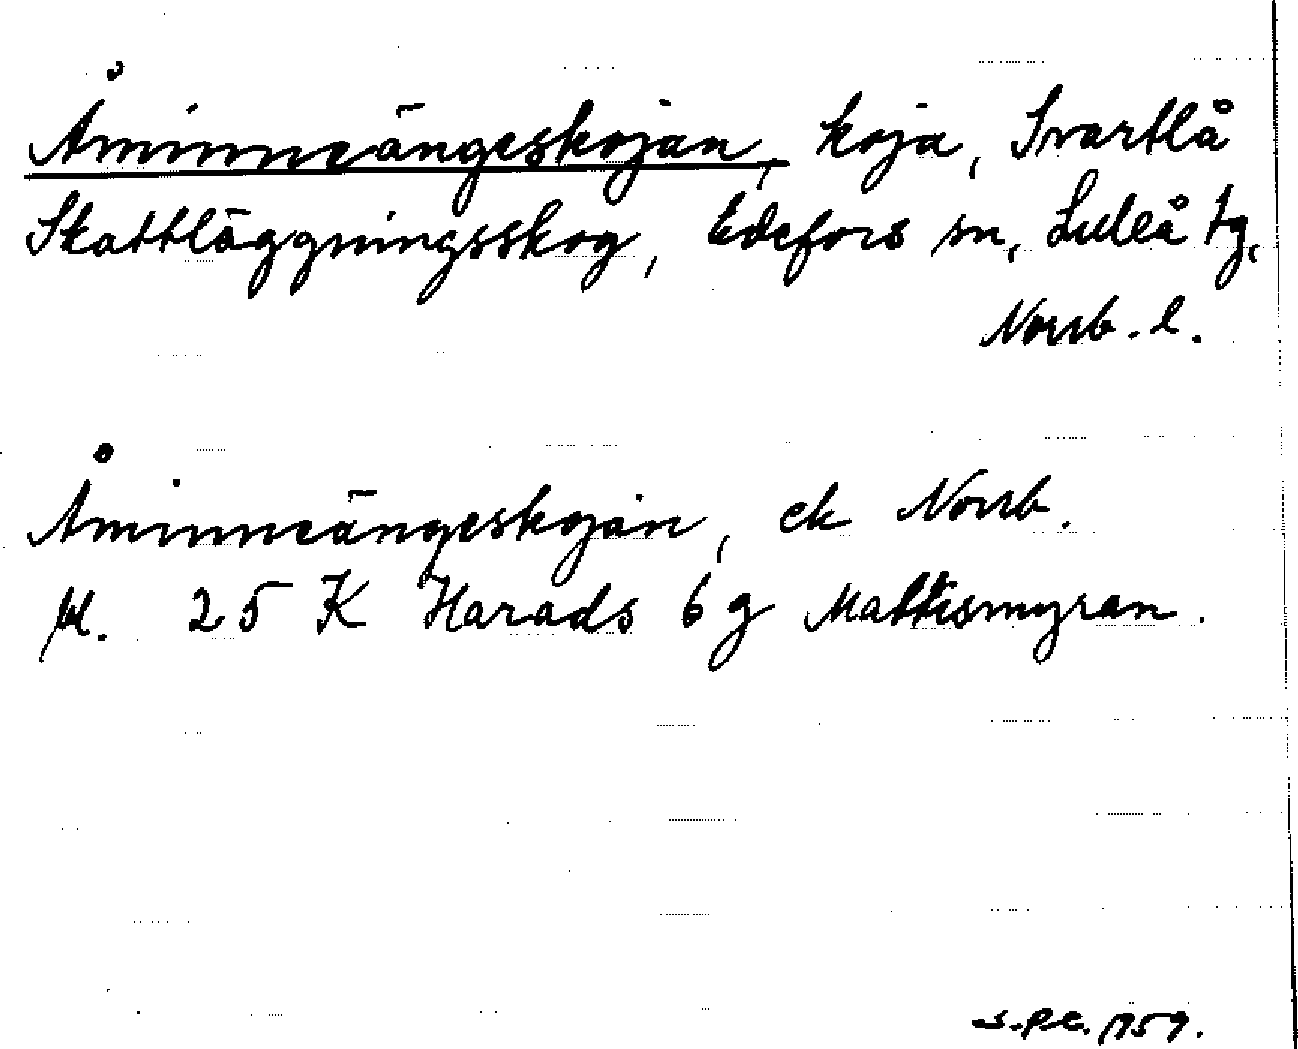 Åminneängeskojan, koja, Svartlå
Skattläggningsskog, Edefors sn, Luleå tg,
Norrb. l.
Åminneängeskojan, ek Norrb.
bl. 25 K Harads 6 g Mattismyran.
1959.